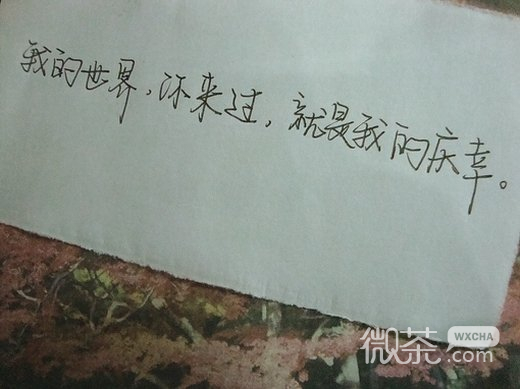 我的世界，你来过，就是我的庆幸。
微茶 WXCHA
.com